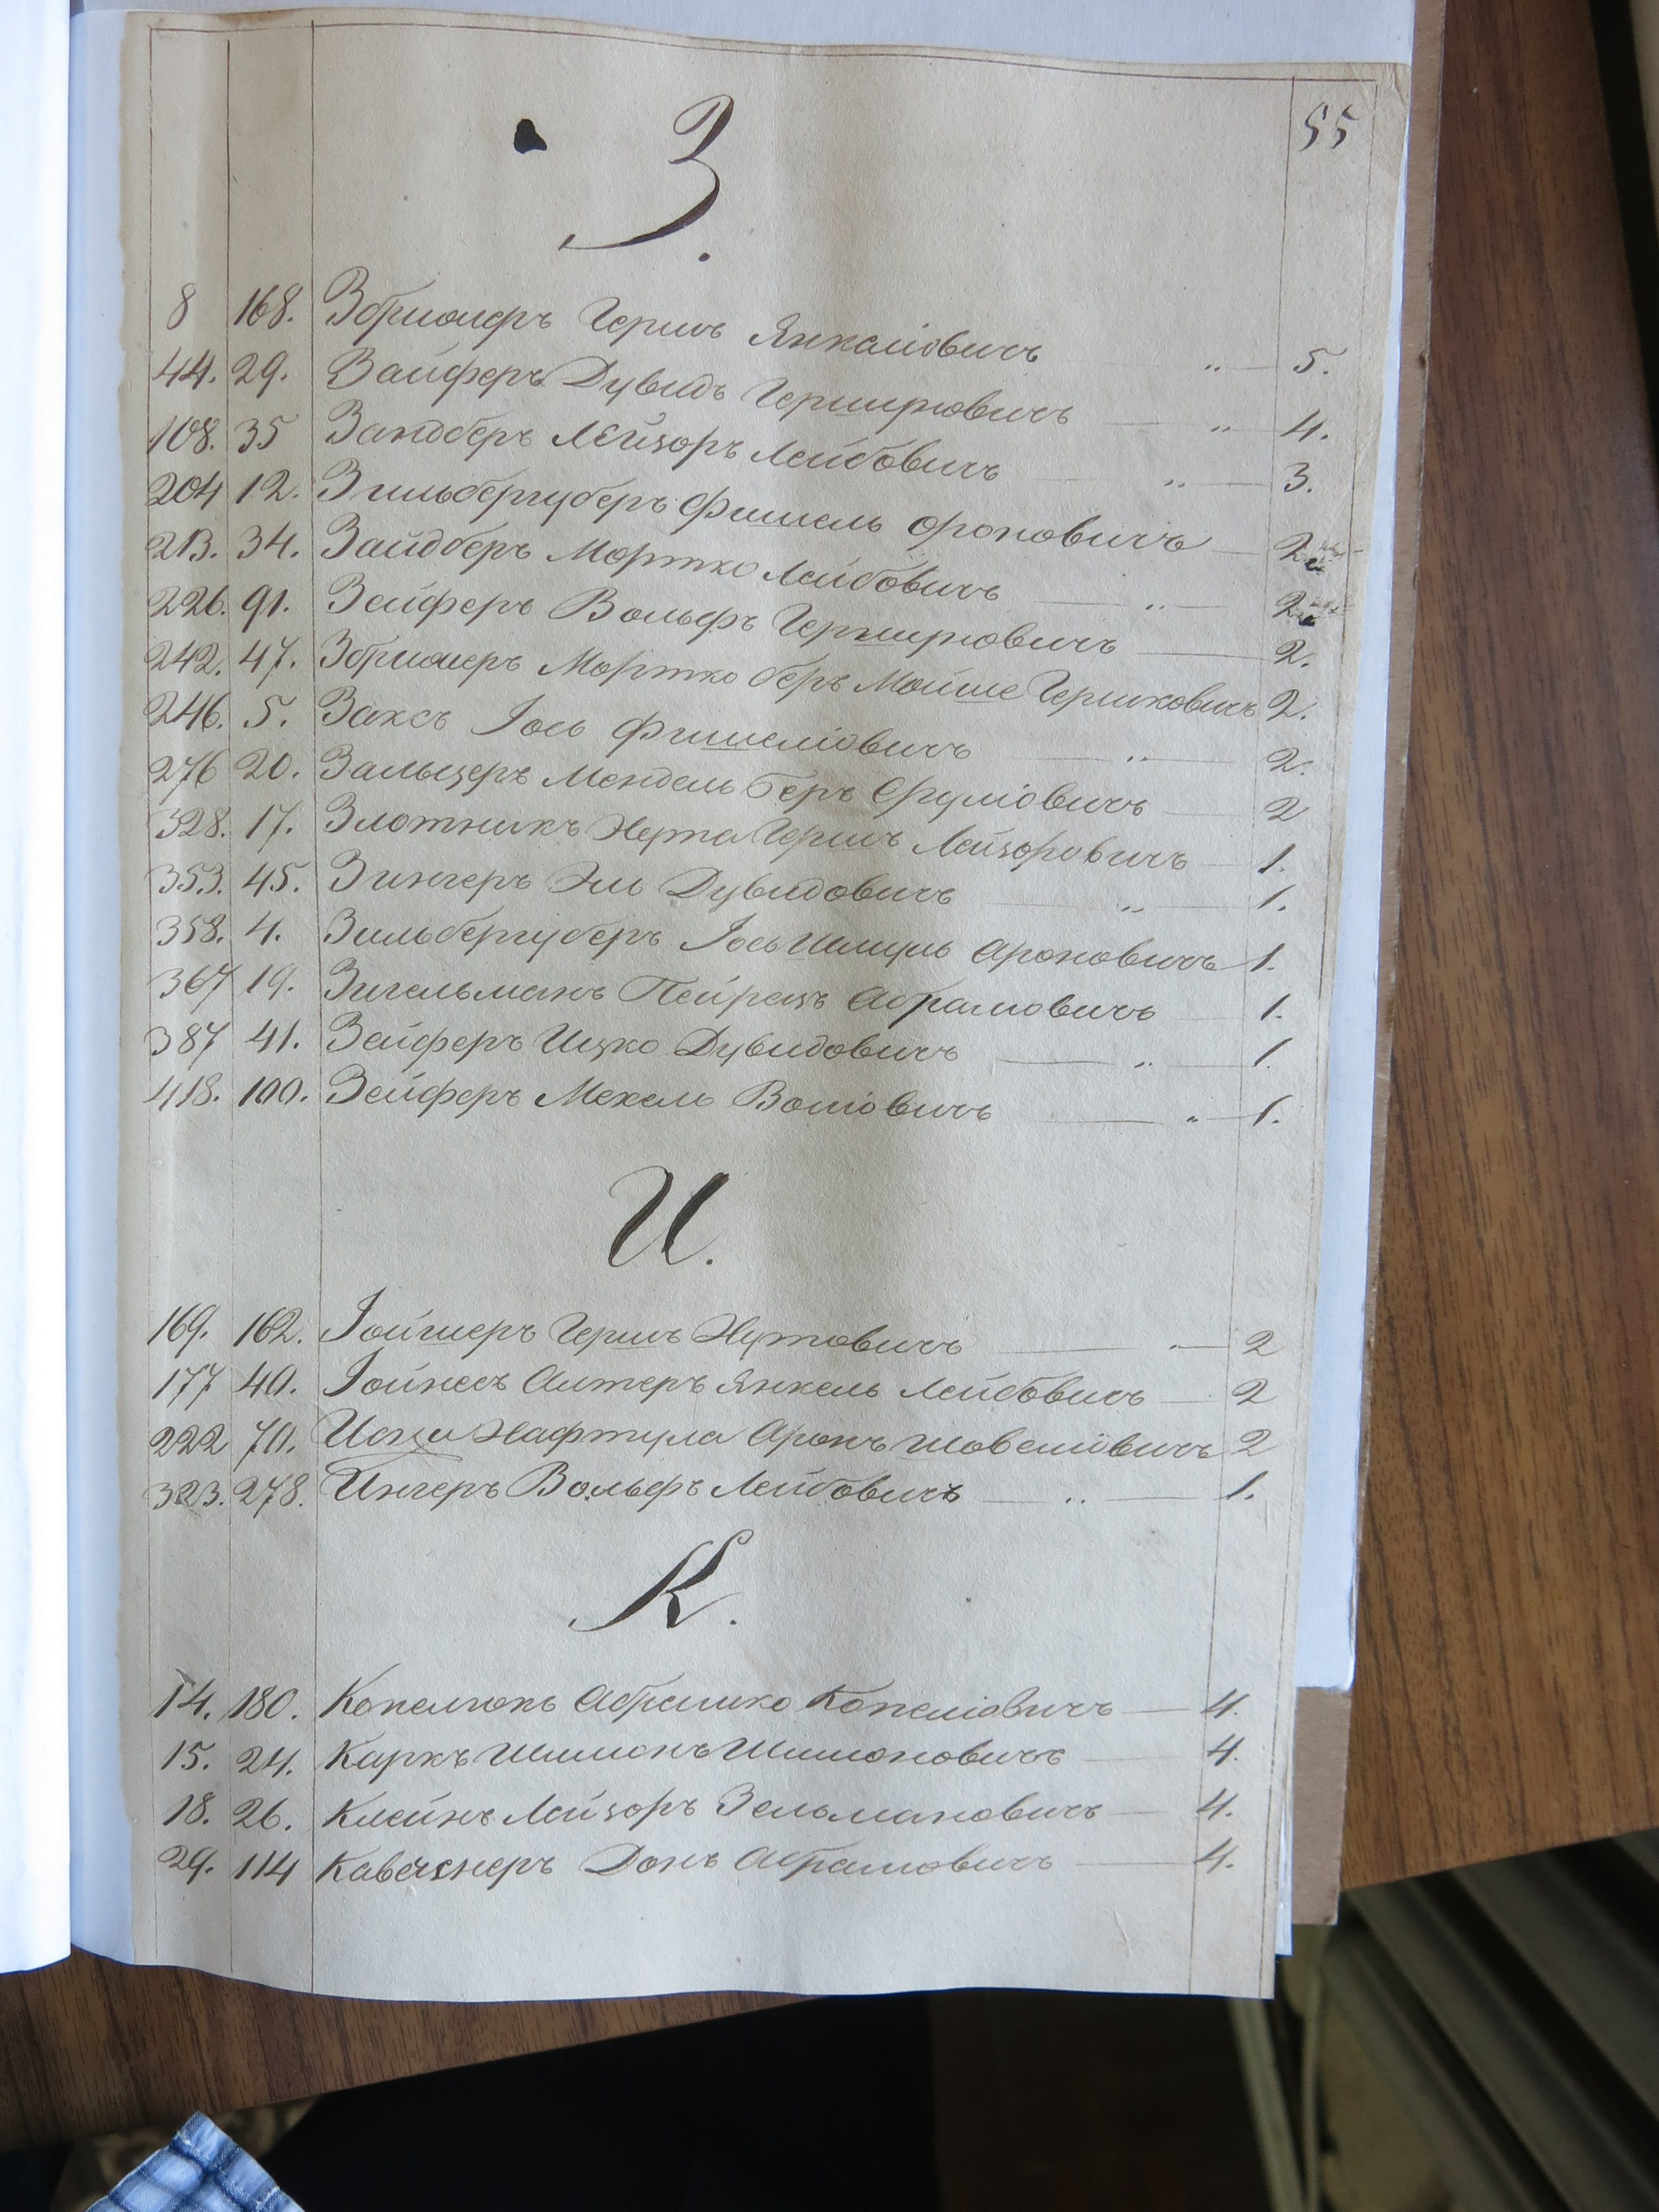 55
З.
8 168. Збриомеръ Гершъ Янкелiовичъ „ 5.
44. 29. Зайферъ Дувидъ Гершковичъ „ 4.
108. 35 Зандберъ Лейзоръ Лейбовичъ „ 3.
204 12. Зильбергуберъ Фишель Ароновичъ 2
213. 34. Зайдберъ Мортко Лейбовичъ „ 2
226. 91. Зейферъ Вольфъ Гершковичъ 2.
242. 47. Збриомеръ Мортко Беръ Мойше Гершковичъ 2.
246. 5. Заксъ Iось Фишелiовичъ „ 2.
276 20. Зальцеръ Мендель Беръ Срулiовичъ 2
328. 17. Злотникъ Нута Гершъ Лейзоровичъ 1.
353. 45. Зингеръ Эль Дувидовичъ „ 1.
358. 4. Зильбергуберъ Iось Шмуль Ароновичъ 1.
367 19. Зигельманъ Пейрецъ Абрамовичъ 1.
387 41. Зейферъ Ицко Дувидовичъ „ 1.
418. 100. Зейферъ Мехель Волiовичъ „ 1.
И.
169. 162. Iойшеръ Гершъ Нутовичъ „ 2
177 40. Iойнесъ Алтеръ Янкель Лейбовичъ 2
222 70. Нафтула Аронъ Шовелiовичъ 2
323. 278. Ингеръ Вольфъ Лейбовичъ „ 1.
К.
14. 180. Абрамко Копелiовичъ 4.
15. 24. Каркъ Шимонъ Шимоновичъ 4.
18. 26. Клейнъ Лейзоръ Зельмановичъ 4.
29. 114 Донъ Абрамовичъ 4.